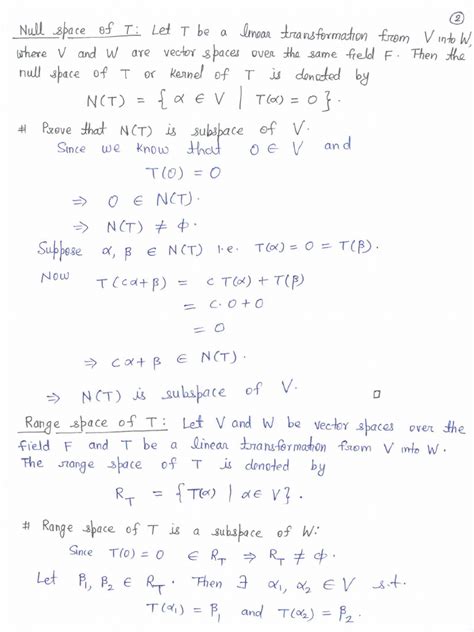 ②
Null space of T: Let T be a linear transformation from V into W,
where V and W are vector spaces over the same field F. Then the
null space of T or Kernel of T is denoted by
N(T) = { α ∈ V | T(α) = 0 }.
# Prove that N(T) is subspace of V.
Since we know that 0 ∈ V and
T(0) = 0
⇒ 0 ∈ N(T).
⇒ N(T) ≠ φ.
Suppose α, β ∈ N(T) i.e. T(α) = 0 = T(β).
Now T(cα+β) = c T(α) + T(β)
= c.0+0
= 0
⇒ cα+β ∈ N(T).
⇒ N(T) is subspace of V. □
Range space of T: Let V and W be vector spaces over the
field F and T be a linear transformation from V into W.
The range space of T is denoted by
R_T = { T(α) | α∈V }.
# Range space of T is a subspace of W:
Since T(0) = 0 ∈ R_T ⇒ R_T ≠ φ.
Let β₁, β₂ ∈ R_T. Then ∃ α₁, α₂ ∈ V s.t.
T(α₁) = β₁ and T(α₂) = β₂.